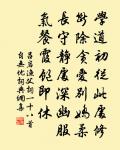 學道初從此處修
斷除貪愛別嬌柔
長守靜處深幽服
氣餐霞飽即休
呂岩漁父詞一十八首
詞典網